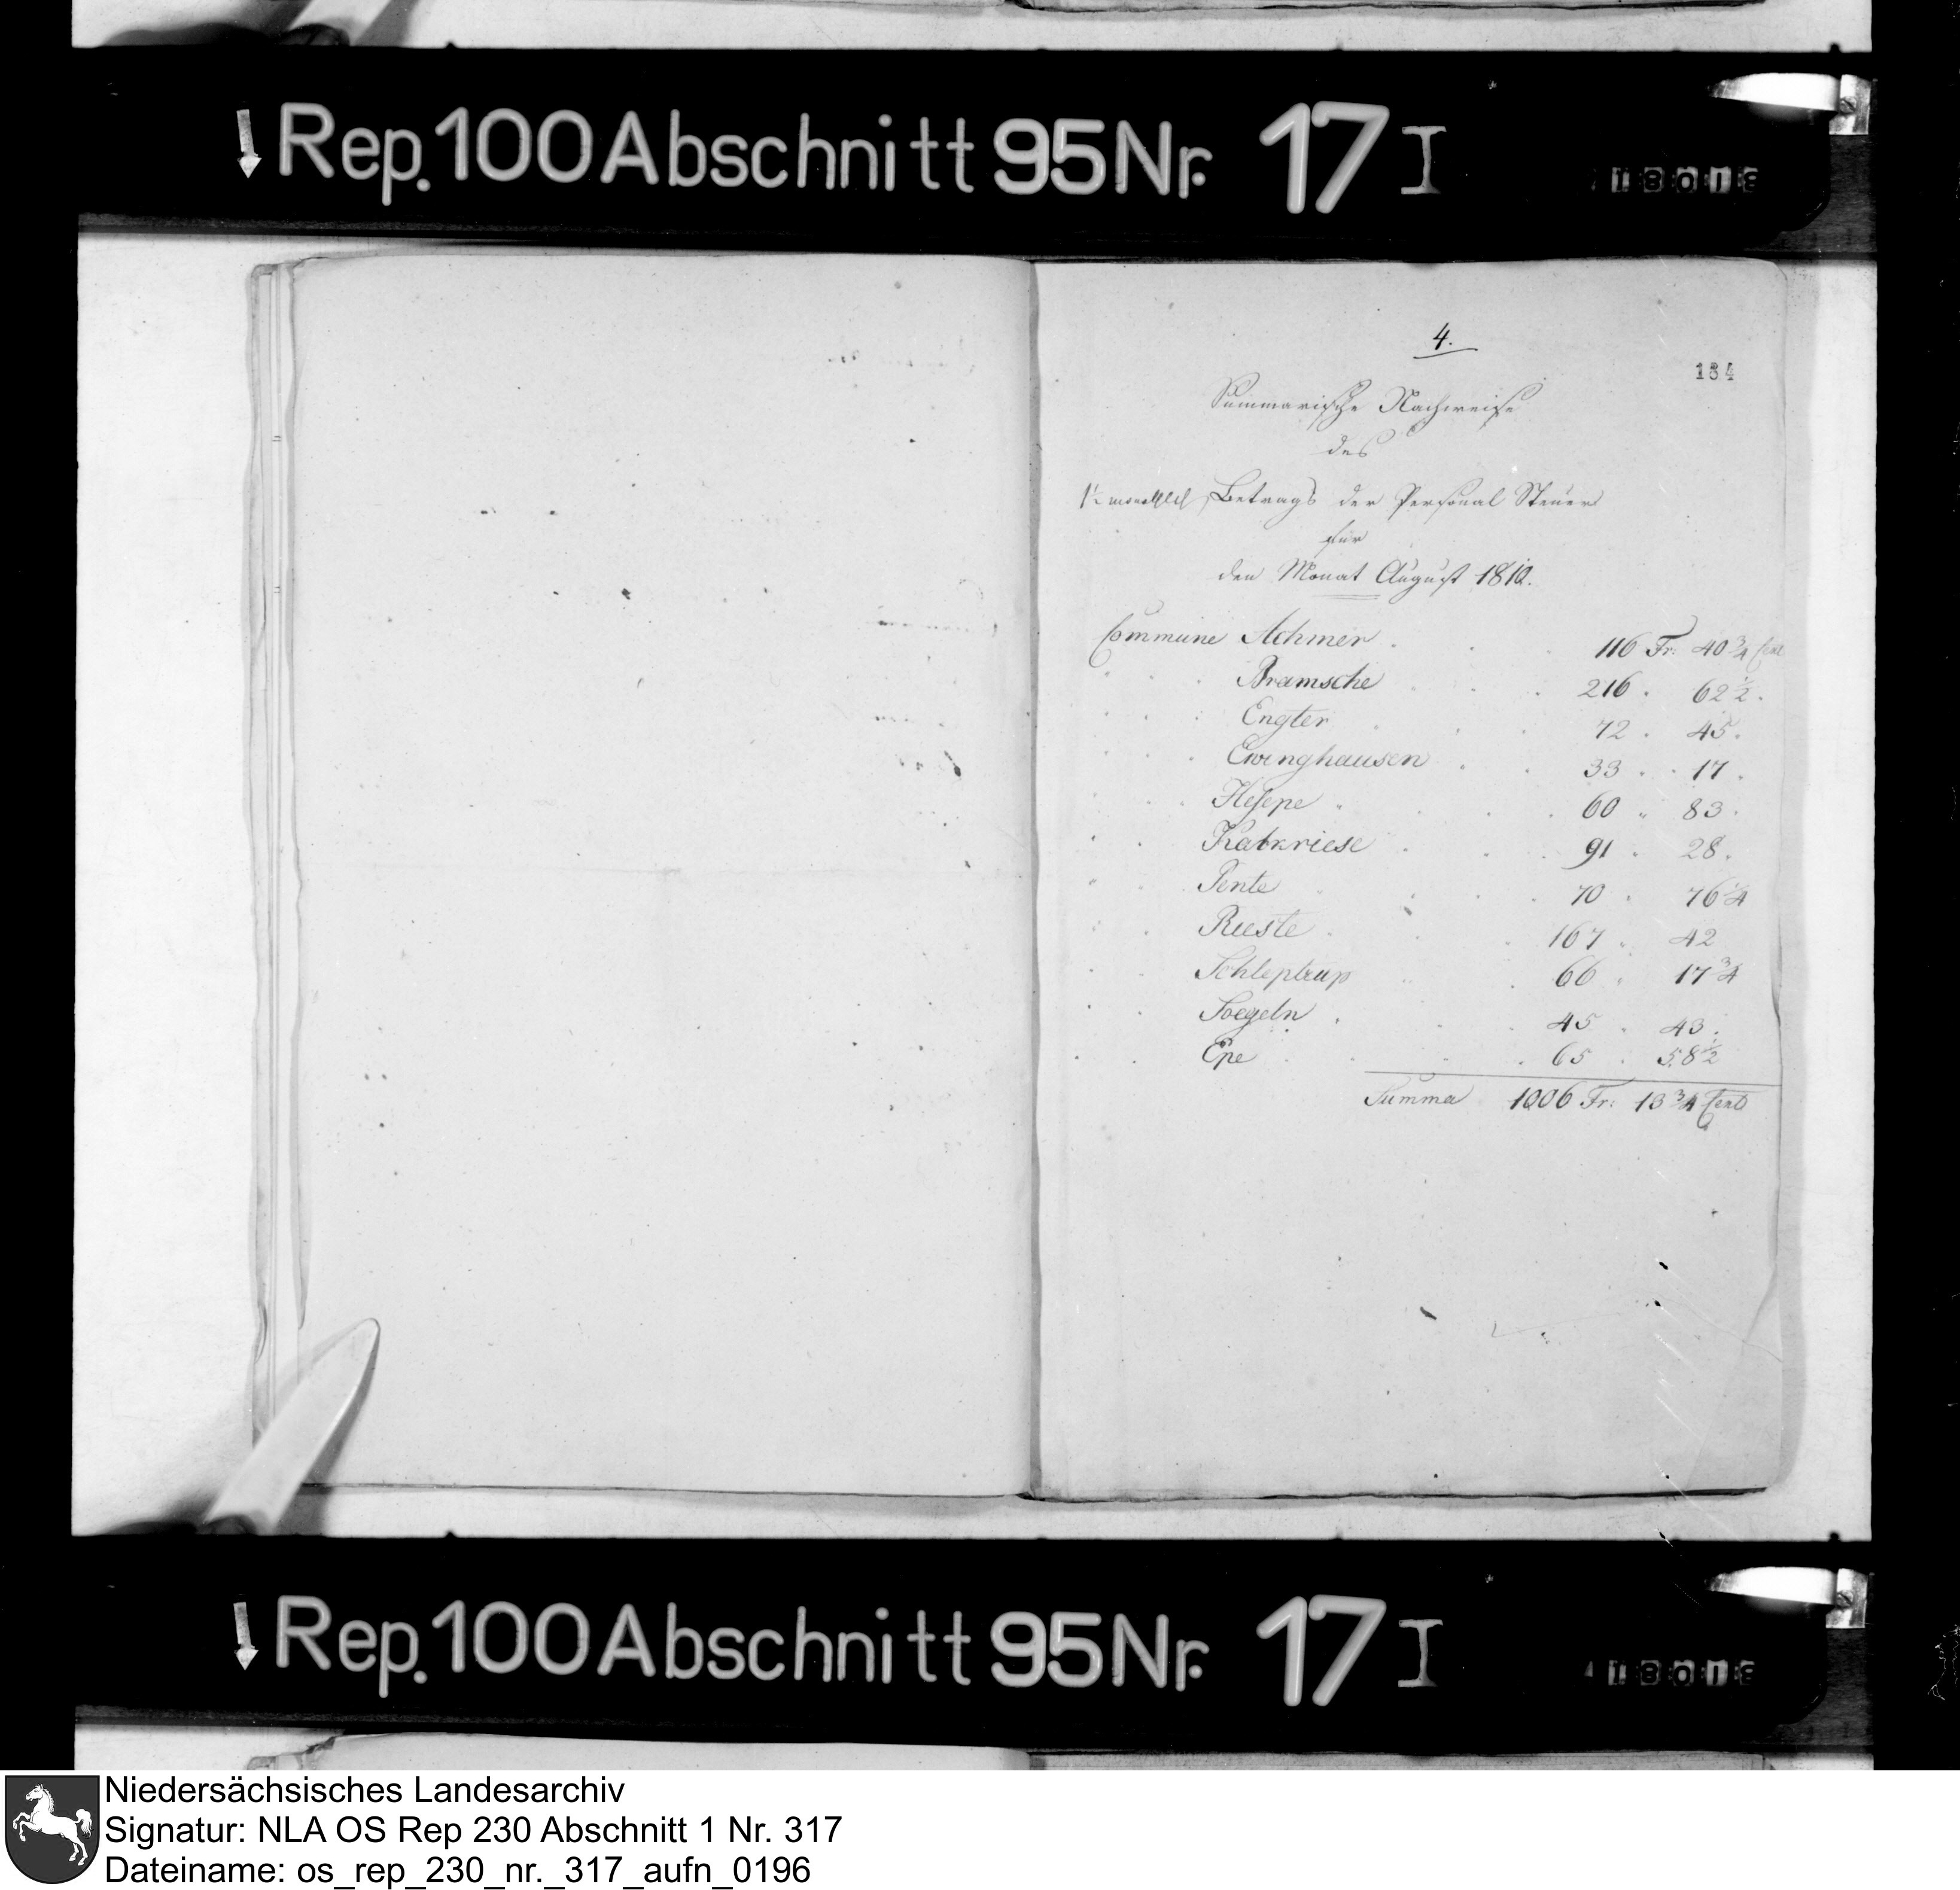 Rep. 100 Abschnitt 95 Nr. 17 I
18018
4.
184
Summarische Nachweise
des
1/2 monatlich Betrags der Personal Steuer
für
den Monat August 1810.
Commune Achmer . . . 116 Fr: 40 3/4 Cent
. . . Bramsche . . . 216 . 62 1/2 .
. . . Engter . . . 72 . 45 .
. . . Ewinghausen . . 33 . 17 .
. . . Hesepe . . . . 60 " 83 .
. . Kalkriese . . . 91 . 28 .
. . Pente . . . 70 . 76 1/4
. . Rieste . . 167 . 42
. . Schleptrup . . 66 " 17 3/4
. . Soegeln . . . 45 . 43 .
. . Epe . . . . 65 . 58 1/2
Summa 1006 Fr: 13 3/4 Cent
Rep. 100 Abschnitt 95 Nr. 17 I
18018
Niedersächsisches Landesarchiv
Signatur: NLA OS Rep 230 Abschnitt 1 Nr. 317
Dateiname: os_rep_230_nr._317_aufn_0196